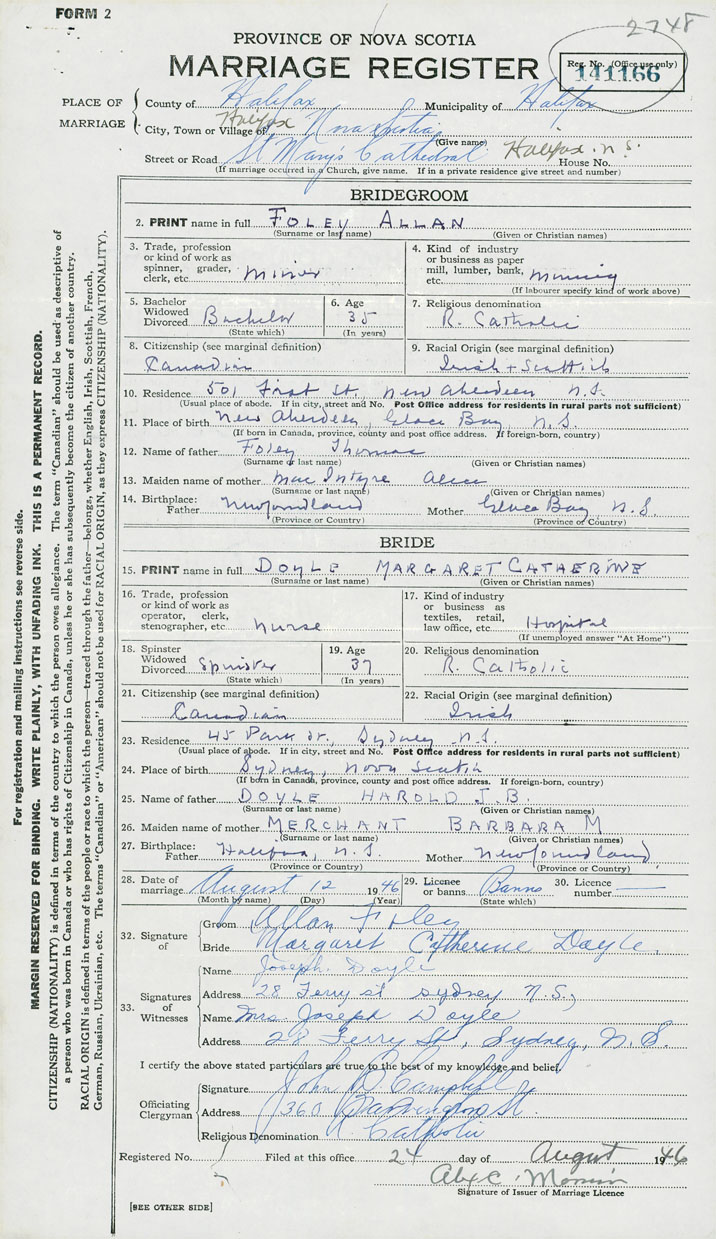 FORM 2
2748
PROVINCE OF NOVA SCOTIA
MARRIAGE REGISTER
Reg. No. (Office use only)
141166
PLACE OF MARRIAGE
County of Halifax Municipality of Halifax
City, Town or Village of Halifax Nova Scotia
(Give name)
Street or Road St Mary's Cathedral Halifax N.S. House No.
(If marriage occurred in a Church, give name. If in a private residence give street and number)
BRIDEGROOM
2. PRINT name in full FOLEY ALLAN
(Surname or last name) (Given or Christian names)
3. Trade, profession or kind of work as spinner, grader, clerk, etc. Miner
4. Kind of industry or business as paper mill, lumber, bank, etc. Mining
(If labourer specify kind of work above)
5. Bachelor Widowed Divorced Bachelor
(State which)
6. Age 35
(In years)
7. Religious denomination
R. Catholic
8. Citizenship (see marginal definition)
Canadian
9. Racial Origin (see marginal definition)
Irish + Scottish
10. Residence 501 First St., New Aberdeen N.S.
(Usual place of abode. If in city, street and No. Post Office address for residents in rural parts not sufficient)
11. Place of birth New Aberdeen, Glace Bay, N.S.
(If born in Canada, province, county and post office address. If foreign-born, country)
12. Name of father Foley Thomas
(Surname or last name) (Given or Christian names)
13. Maiden name of mother MacIntyre Alice
(Surname or last name) (Given or Christian names)
14. Birthplace: Father Newfoundland Mother Glace Bay, N.S.
(Province or Country) (Province or Country)
BRIDE
15. PRINT name in full DOYLE MARGARET CATHERINE
(Surname or last name) (Given or Christian names)
16. Trade, profession or kind of work as operator, clerk, stenographer, etc. Nurse
17. Kind of industry or business as textiles, retail, law office, etc. Hospital
(If unemployed answer "At Home")
18. Spinster Widowed Divorced Spinster
(State which)
19. Age 37
(In years)
20. Religious denomination
R. Catholic
21. Citizenship (see marginal definition)
Canadian
22. Racial Origin (see marginal definition)
Irish
23. Residence 45 Park St., Sydney N.S.
(Usual place of abode. If in city, street and No. Post Office address for residents in rural parts not sufficient)
24. Place of birth Sydney, Nova Scotia
(If born in Canada, province, county and post office address. If foreign-born, country)
25. Name of father DOYLE HAROLD J.B.
(Surname or last name) (Given or Christian names)
26. Maiden name of mother MERCHANT BARBARA M
(Surname or last name) (Given or Christian names)
27. Birthplace: Father Halifax, N.S. Mother Newfoundland
(Province or Country) (Province or Country)
28. Date of marriage August 12 1946
(Month by name) (Day) (Year)
29. Licence or banns Banns
(State which)
30. Licence number
32. Signature of
Groom Allan Foley
Bride Margaret Catherine Doyle.
33. Signatures of Witnesses
Name Joseph Doyle
Address 28 Ferry st Sydney N.S,
Name Mrs. Joseph Doyle
Address 28 Ferry St, Sydney, N.S.
I certify the above stated particulars are true to the best of my knowledge and belief.
Officiating Clergyman
Signature John R. Campbell
Address 1360 Barrington St.
Religious Denomination R. Catholic
Registered No. Filed at this office 24 day of August 1946
Signature of Issuer of Marriage Licence
[SEE OTHER SIDE]
For registration and mailing instructions see reverse side.
MARGIN RESERVED FOR BINDING. WRITE PLAINLY, WITH UNFADING INK. THIS IS A PERMANENT RECORD.
CITIZENSHIP (NATIONALITY) is defined in terms of the country to which the person owes allegiance. The term "Canadian" should be used as descriptive of
a person who was born in Canada or who has rights of Citizenship in Canada, unless he or she has subsequently become the citizen of another country.
RACIAL ORIGIN is defined in terms of the people or race to which the person—traced through the father—belongs, whether English, Irish, Scottish, French,
German, Russian, Ukrainian, etc. The terms "Canadian" or "American" should not be used for RACIAL ORIGIN, as they express CITIZENSHIP (NATIONALITY).